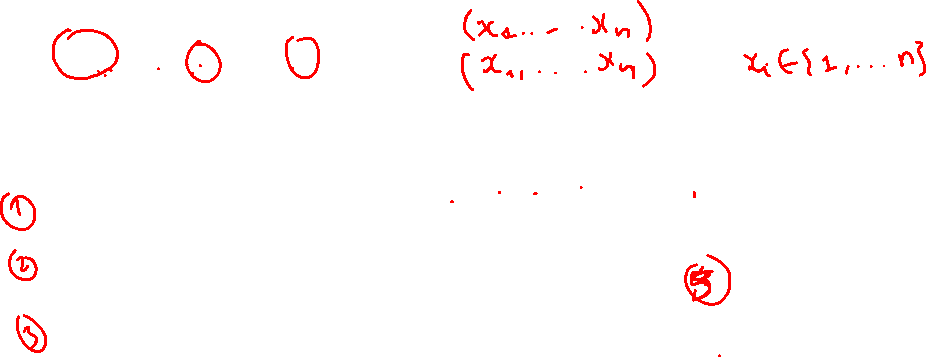 (x₁ ... xₙ)
(x₁, ... xₙ) xᵢ ∈ {1, ... n}
1
2
5
3